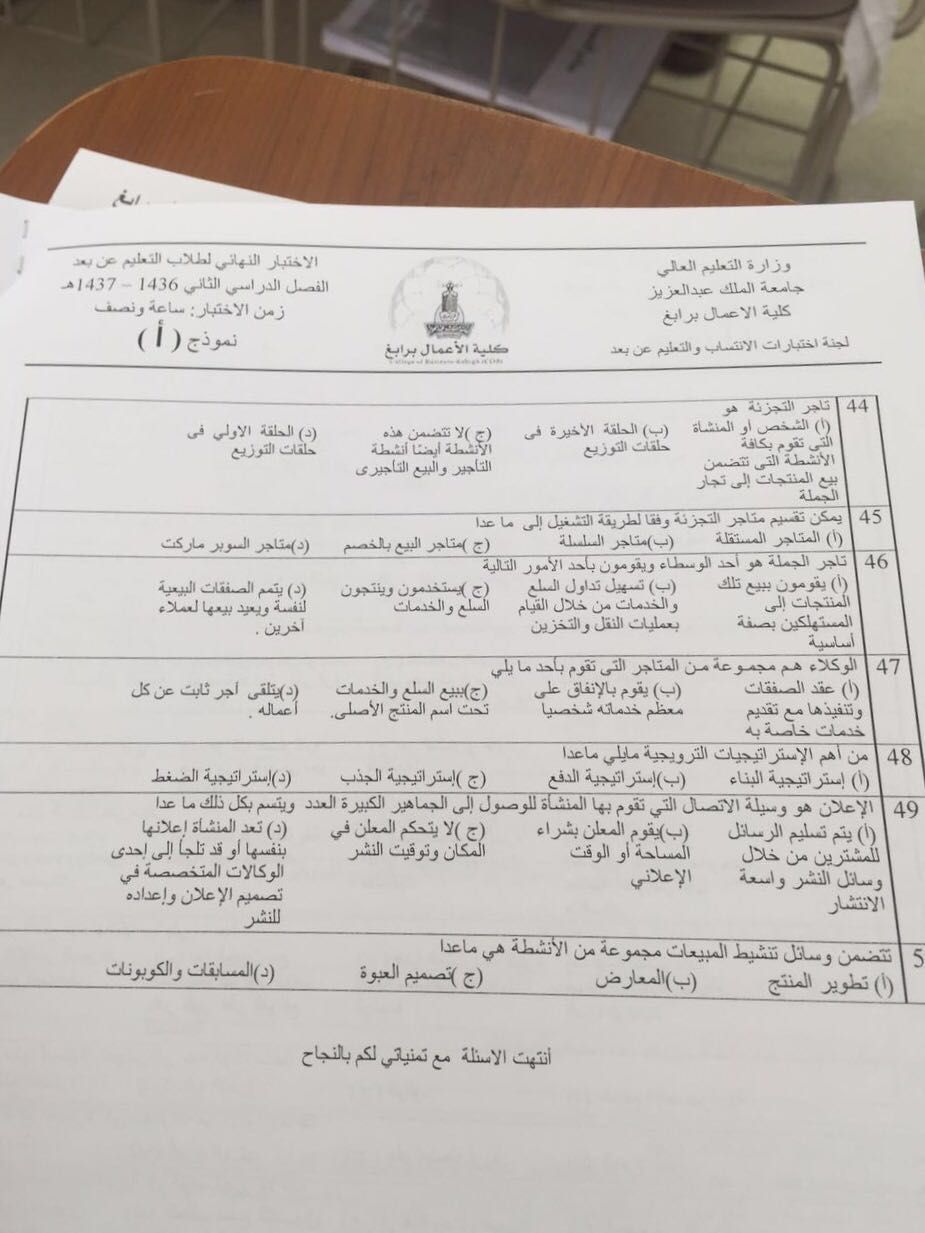 برابغ
وزارة التعليم العالي
جامعة الملك عبدالعزيز
كلية الاعمال برابغ
لجنة اختبارات الانتساب والتعليم عن بعد
كلية الأعمال برابغ
College of Business-Rabigh (COB)
الاختبار النهائي لطلاب التعليم عن بعد
الفصل الدراسي الثاني 1436 – 1437هـ
زمن الاختبار: ساعة ونصف
نموذج ( أ )
44 تاجر التجزئة هو
(أ) الشخص أو المنشأة
التى تقوم بكافة
الأنشطة التى تتضمن
بيع المنتجات إلى تجار
الجملة
(ب) الحلقة الأخيرة فى
حلقات التوزيع
(ج )لا تتضمن هذه
الأنشطة أيضًا أنشطة
التأجير والبيع التأجيرى
(د) الحلقة الاولي فى
حلقات التوزيع
45 يمكن تقسيم متاجر التجزئة وفقا لطريقة التشغيل إلى ما عدا
(أ) المتاجر المستقلة (ب)متاجر السلسلة (ج )متاجر البيع بالخصم (د)متاجر السوبر ماركت
46 تاجر الجملة هو أحد الوسطاء ويقومون بأحد الأمور التالية
(أ) يقومون ببيع تلك
المنتجات إلى
المستهلكين بصفة
أساسية
(ب) تسهيل تداول السلع
والخدمات من خلال القيام
بعمليات النقل والتخزين
(ج )يستخدمون وينتجون
السلع والخدمات
(د) يتمم الصفقات البيعية
لنفسة ويعيد بيعها لعملاء
آخرين .
47 الوكلاء هم مجموعة من المتاجر التى تقوم بأحد ما يلي
(أ) عقد الصفقات
وتنفيذها مع تقديم
خدمات خاصة به
(ب) يقوم بالإنفاق على
معظم خدماته شخصيا
(ج)ببيع السلع والخدمات
تحت اسم المنتج الأصلى.
(د)يتلقى أجر ثابت عن كل
أعماله .
48 من أهم الإستراتيجيات الترويجية مايلي ماعدا
(أ) إستراتيجية البناء (ب)إستراتيجية الدفع (ج )إستراتيجية الجذب (د)إستراتيجية الضغط
49 الإعلان هو وسيلة الاتصال التي تقوم بها المنشأة للوصول إلى الجماهير الكبيرة العدد ويتسم بكل ذلك ما عدا
(أ) يتم تسليم الرسائل
للمشترين من خلال
وسائل النشر واسعة
الانتشار
(ب)يقوم المعلن بشراء
المساحة أو الوقت
الإعلاني
(ج )لا يتحكم المعلن في
المكان وتوقيت النشر
(د) تعد المنشأة إعلانها
بنفسها أو قد تلجأ إلى إحدى
الوكالات المتخصصة في
تصميم الإعلان وإعداده
للنشر
5 تتضمن وسائل تنشيط المبيعات مجموعة من الأنشطة هي ماعدا
(أ) تطوير المنتج (ب)المعارض (ج )تصميم العبوة (د)المسابقات والكوبونات
أنتهت الاسئلة مع تمنياتي لكم بالنجاح